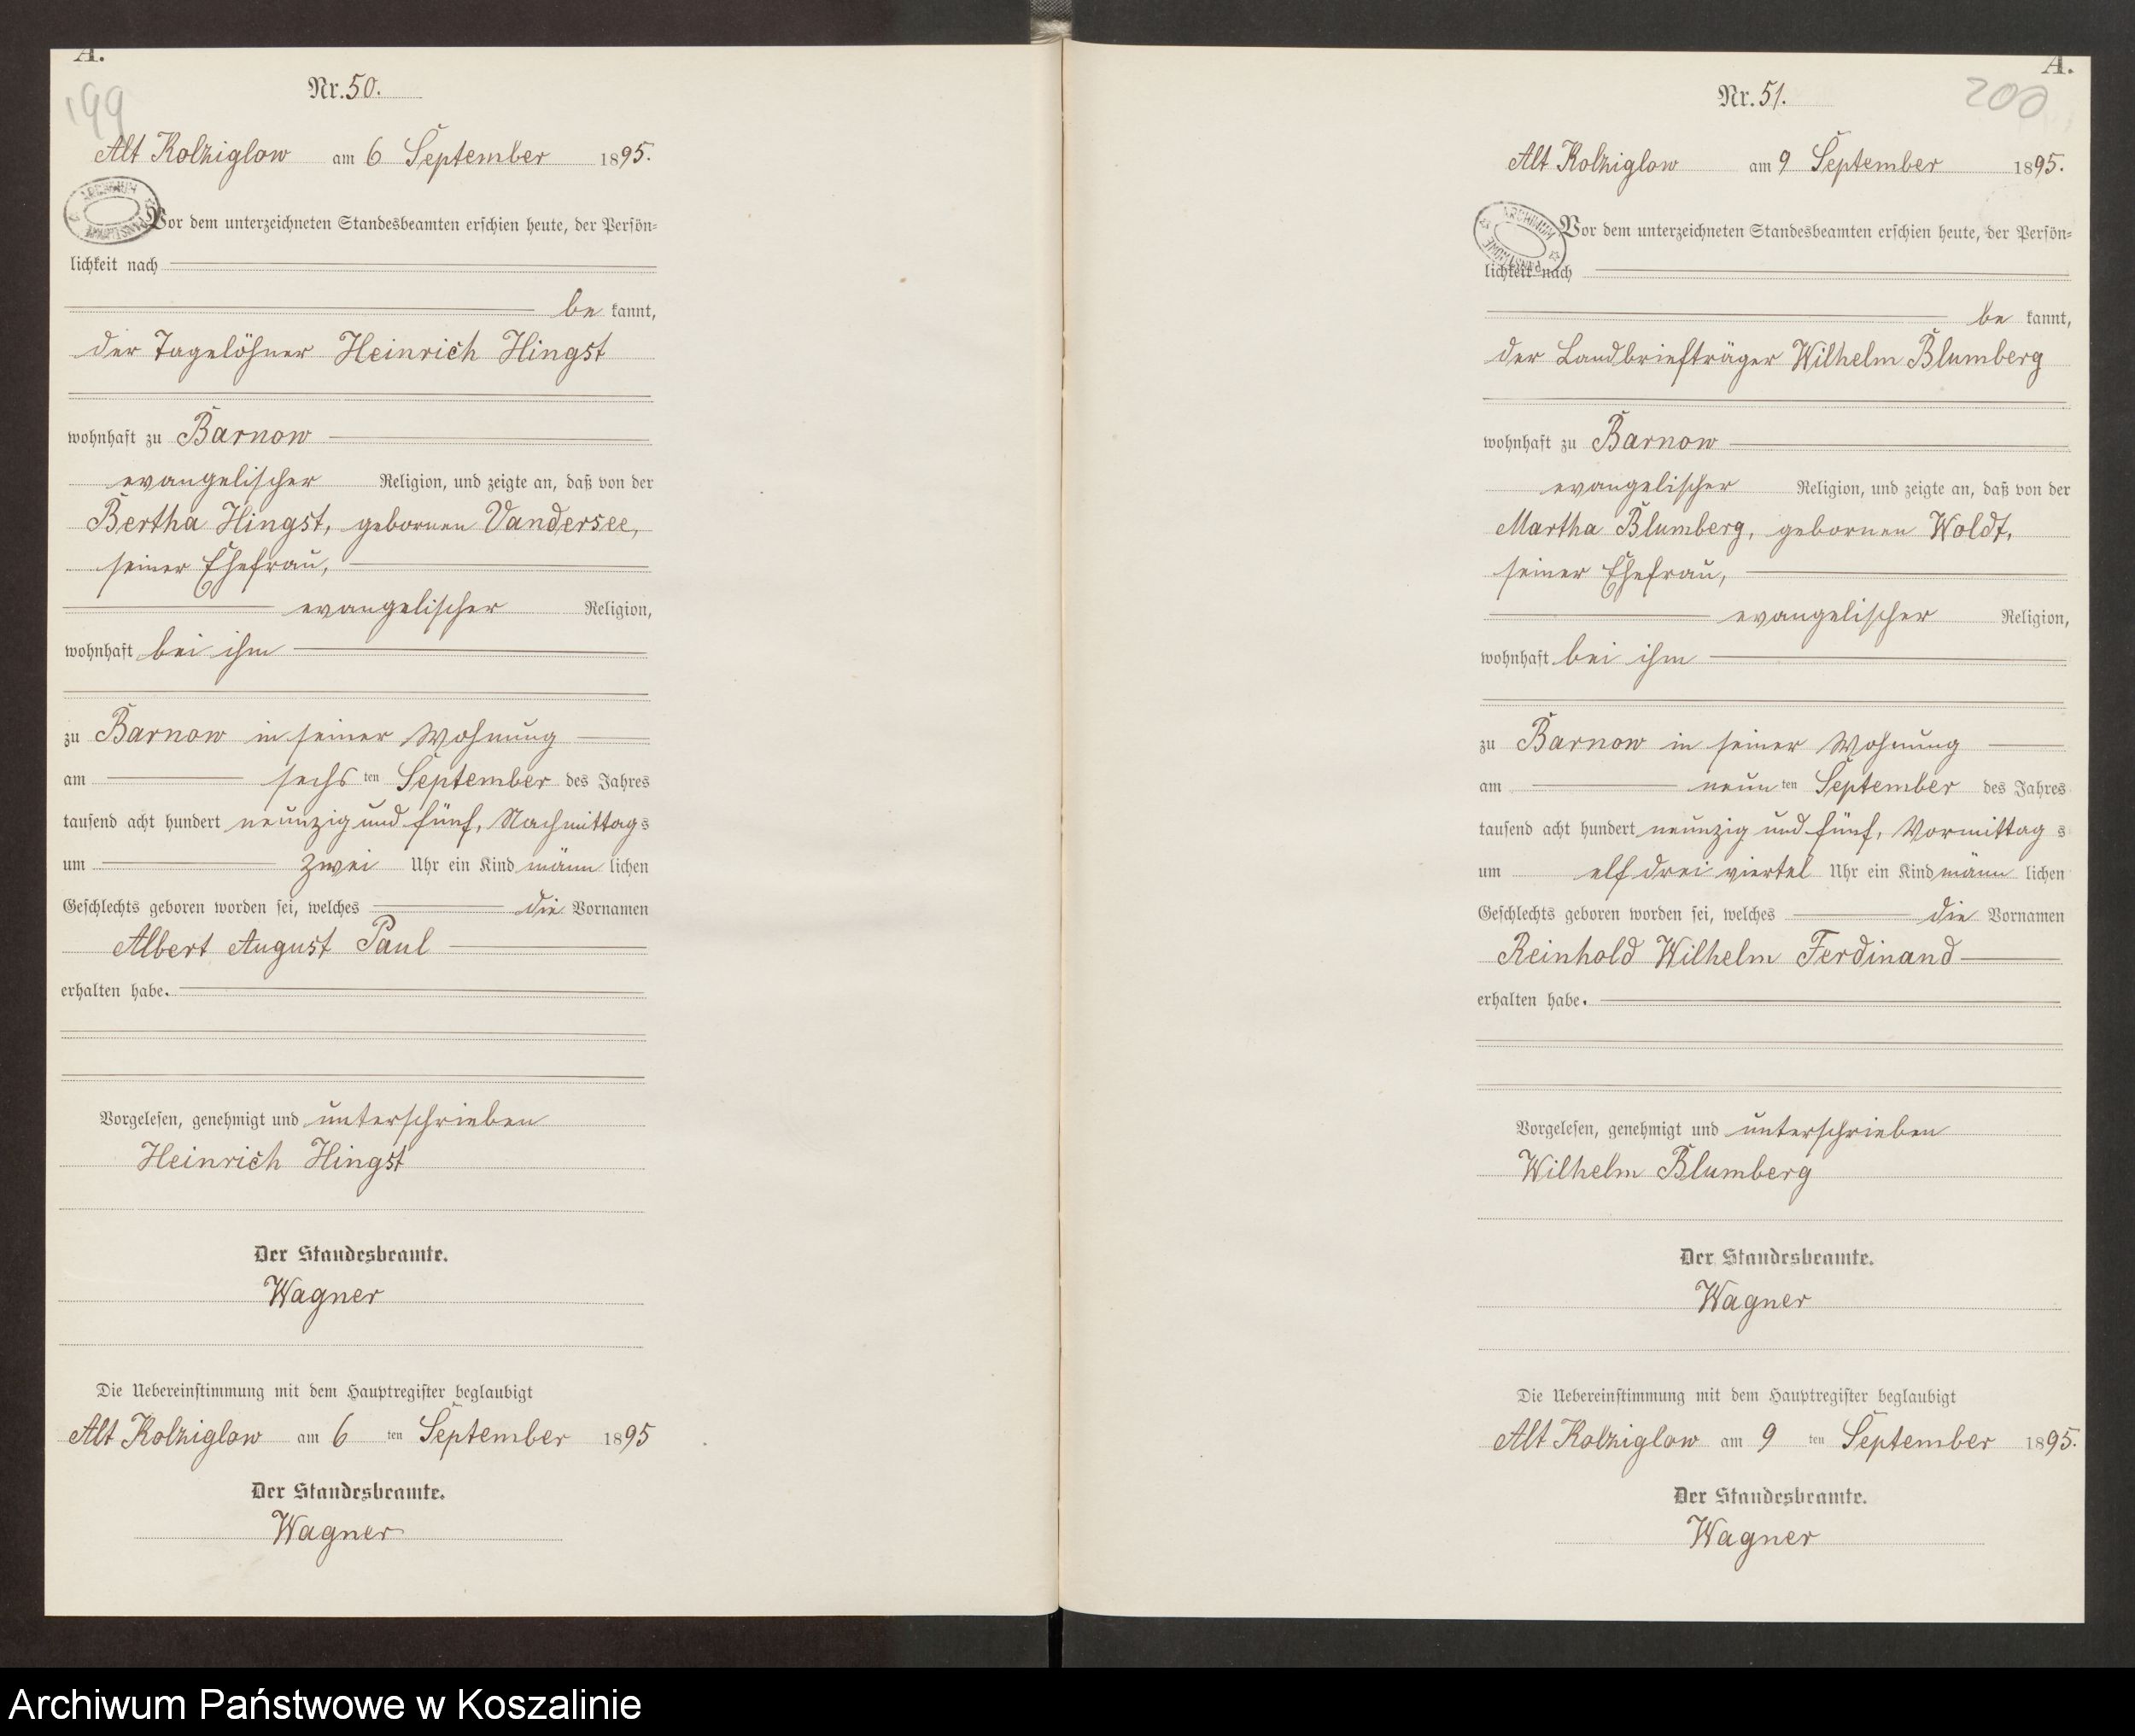 A.
199
Nr. 50.
Alt Kolziglow am 6 September 1895.
ARCHIWUM PAŃSTWOWE
Vor dem unterzeichneten Standesbeamten erschien heute, der Persön=
lichkeit nach
be kannt,
der Tagelöhner Heinrich Hingst
wohnhaft zu Barnow
evangelischer Religion, und zeigte an, daß von der
Bertha Hingst, gebornen Vandersee,
seiner Ehefrau,
evangelischer Religion,
wohnhaft bei ihm
zu Barnow in seiner Wohnung
am sechs ten September des Jahres
tausend acht hundert neunzig und fünf, Nachmittags
um zwei Uhr ein Kind männ lichen
Geschlechts geboren worden sei, welches die Vornamen
Albert August Paul
erhalten habe.
Vorgelesen, genehmigt und unterschrieben
Heinrich Hingst
Der Standesbeamte.
Wagner
Die Uebereinstimmung mit dem Hauptregister beglaubigt
Alt Kolziglow am 6 ten September 1895
Der Standesbeamte.
Wagner
A.
200
Nr. 51.
Alt Kolziglow am 9 September 1895.
ARCHIWUM PAŃSTWOWE
Vor dem unterzeichneten Standesbeamten erschien heute, der Persön=
lichkeit nach
be kannt,
der Landbriefträger Wilhelm Blumberg
wohnhaft zu Barnow
evangelischer Religion, und zeigte an, daß von der
Martha Blumberg, gebornen Woldt,
seiner Ehefrau,
evangelischer Religion,
wohnhaft bei ihm
zu Barnow in seiner Wohnung
am neun ten September des Jahres
tausend acht hundert neunzig und fünf, Vormittag s
um elf drei viertel Uhr ein Kind männ lichen
Geschlechts geboren worden sei, welches die Vornamen
Reinhold Wilhelm Ferdinand
erhalten habe.
Vorgelesen, genehmigt und unterschrieben
Wilhelm Blumberg
Der Standesbeamte.
Wagner
Die Uebereinstimmung mit dem Hauptregister beglaubigt
Alt Kolziglow am 9 ten September 1895.
Der Standesbeamte.
Wagner
Archiwum Państwowe w Koszalinie